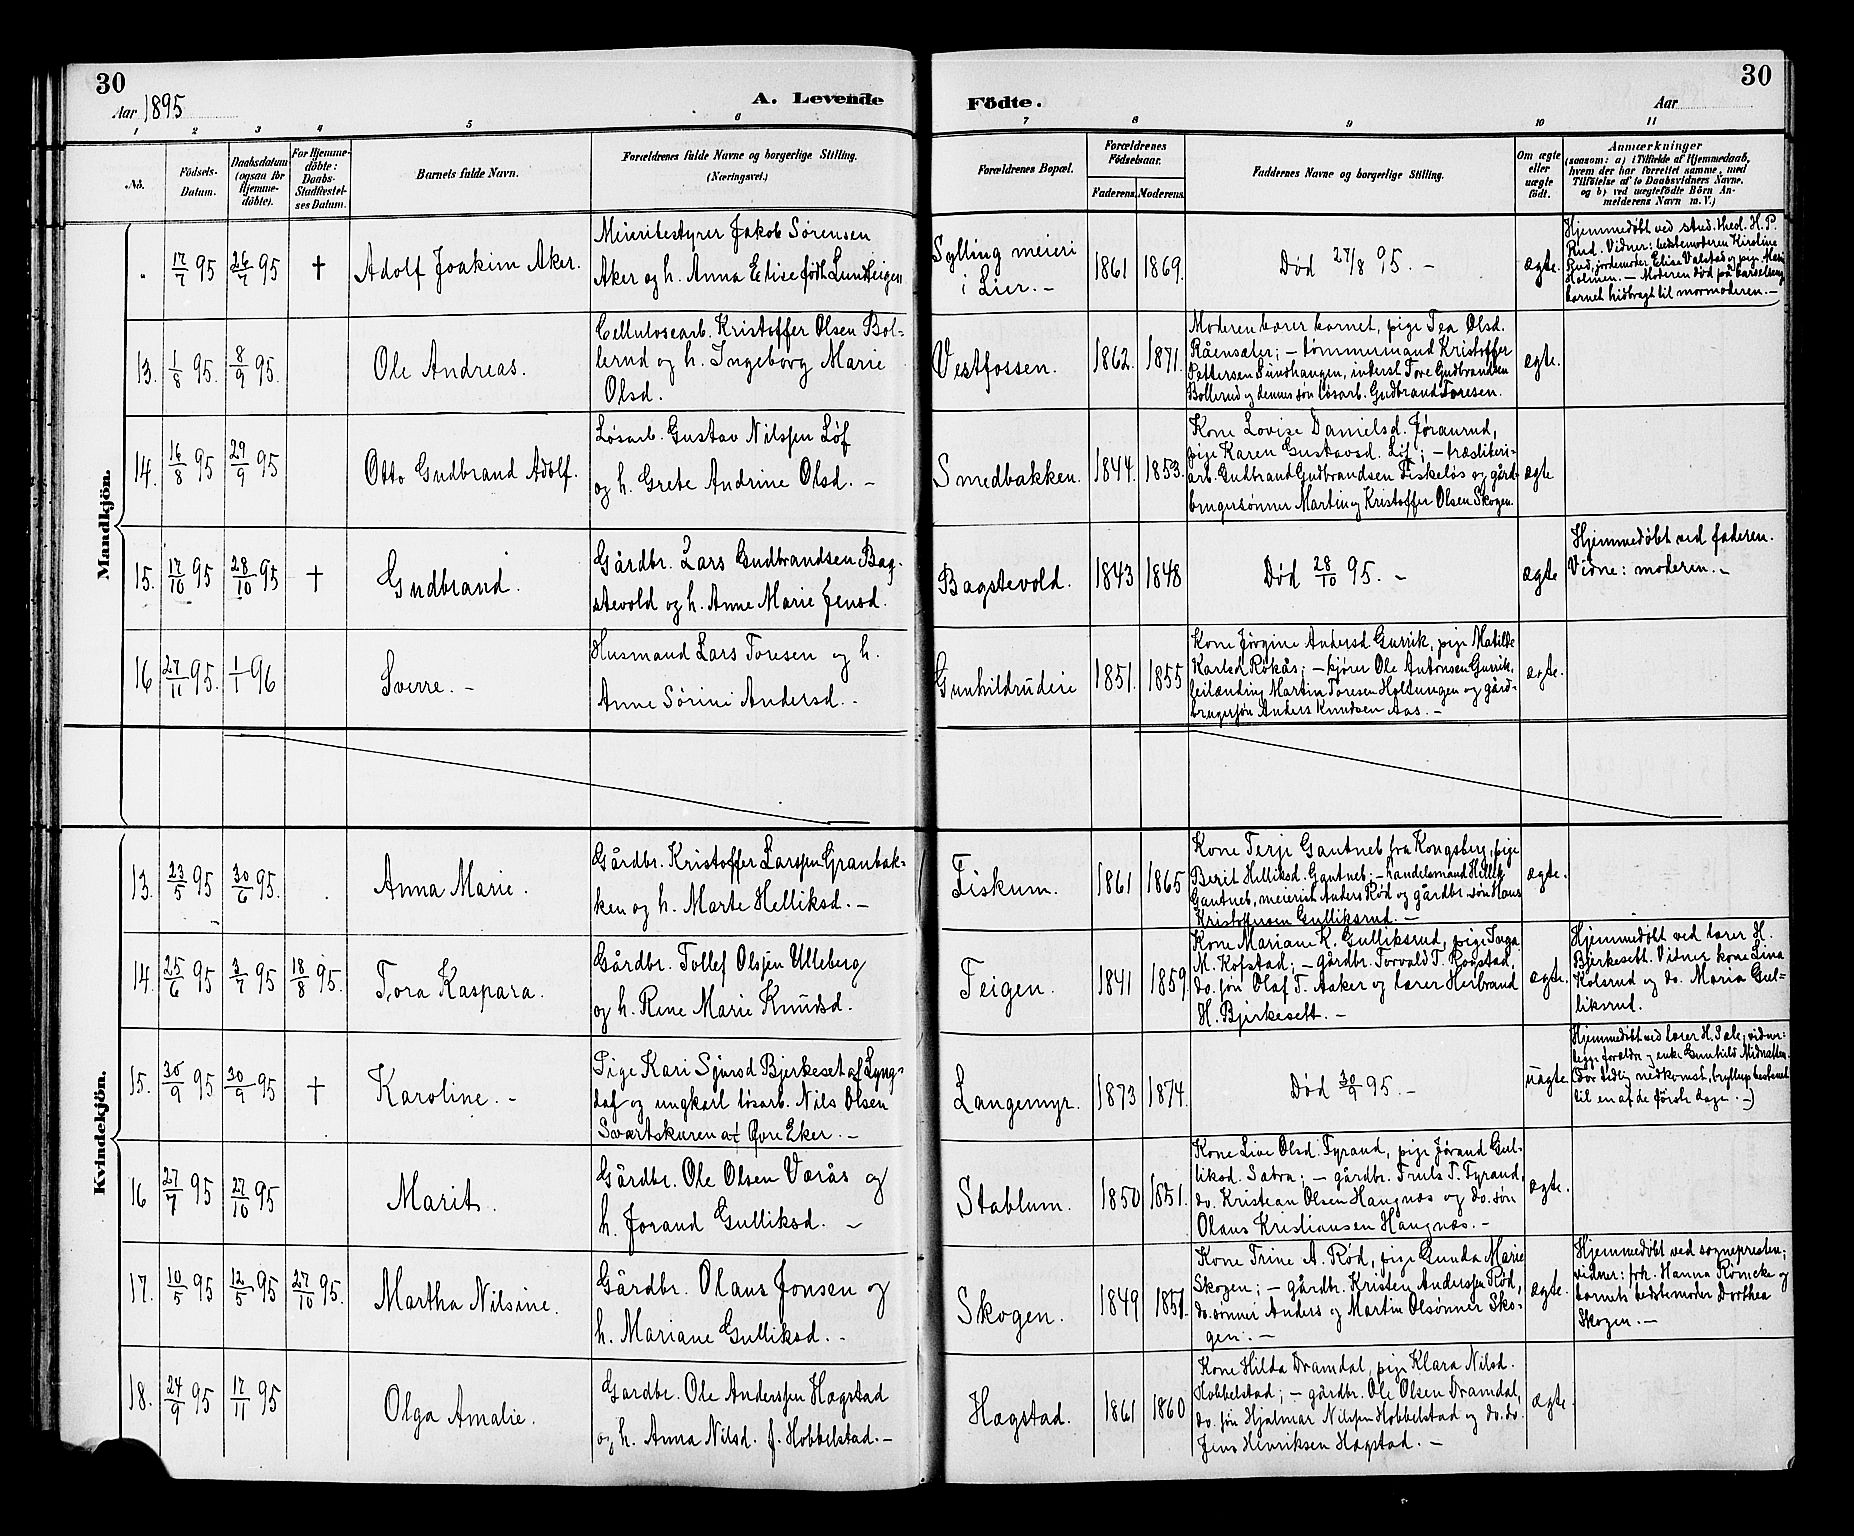 30
Aar 1895
A. Levende
Födte.
Aar
30
1 2 3 4 5 6 7 8 9 10 11
No.
Födsels-
Datum.
Daabsdatum
(ogsaa for
Hjemme-
döbte).
For Hjemme-
döbte:
Daabs-
Stadfæstel-
ses Datum.
Barnets fulde Navn.
Forældrenes fulde Navne og borgerlige Stilling.
(Næringsvei.)
Forældrenes Bopæl.
Forældrenes
Födselsaar.
Faderens. Moderens.
Faddernes Navne og borgerlige Stilling.
Om ægte
eller
uægte
födt.
Anmærkninger
(saasom: a) i Tilfælde af Hjemmedaab,
hvem der har forrettet samme, med
Tilföielse af to Daabsvidners Navne,
og b) ved uægtefödte Börn An-
melderens Navn m. V.)
Mandkjön.
17/7 95
26/7 95
†
Adolf Joakim Aker.
Meieribestyrer Jakob Sørensen
Aker og h. Anna Elise født Lunteigen
Sylling meieri
i Lier. –
1861
1869.
Død 27/8 95. –
ægte.
Hjemmedøbt ved stud. theol. H. P.
Rud. Vidner: bedstemoderen Kirstine
Rud, jordemoder Elise Valstad og pige Mari
Holmen. – Moderen død på barselseng
barnet hidbragt til mormoderen. –
13.
1/8 95.
8/9 95.
Ole Andreas.
Cellulosearb. Kristoffer Olsen Bol-
lerud og h. Ingeborg Marie
Olsd.
Vestfossen.
1862.
1871.
Moderen bærer barnet, pige Tea Olsd.
Råensæter; – tømmermand Kristoffer
Pettersen Sundhaugen, inderst Tore Gudbrandsen
Bollerud og dennes søn løsarb. Gudbrand Toresen.
ægte.
14.
16/8 95
29/9 95
Otto Gudbrand Adolf.
Løsarb. Gustav Nilssen Løf
og h. Grete Andrine Olsd. –
Smedbakken.
1844.
1853.
Kone Lovise Danielsd. Jøranrud,
pige Karen Gustavsd. Løf; – træsliberi-
arb. Gudbrand Gudbrandsen Fiskeløs og gård-
brugersønner Martin og Kristoffer Olsen Skogen.
ægte
15.
17/10 95
28/10 95
†
Gudbrand.
Gårdbr. Lars Gudbrandsen Bag-
stevold og h. Anne Marie Jensd.
Bagstevold.
1843
1848
Død 28/10 95. –
ægte
Hjemmedøbt ved faderen.
Vidne: moderen. –
16
27/11 95.
1/1 96
Sverre. –
Husmand Lars Toresen og h.
Anne Sørine Andersd. –
Gunhildrudeie
1851.
1855
Kone Jørgine Andersd Gurrik, pige Matilde
Karlsd. Rokås; – kjører Ole Antonsen Gurrik,
feilænding Martin Toresen Holtungen og gård-
brugersøn Anders Knudsen Aas. –
ægte.
Kvindekjön.
13.
23/5 95
30/6 95.
Anna Marie.
Gårdbr. Kristoffer Larssen Granbak-
ken og h. Marte Helliksd. –
Fiskum.
1861
1865
Kone Terji Gautneb fra Kongsberg, pige
Berit Helliksd. Gautneb; – handelsmand Hellik
Gautneb, meierist Anders Rød og gårdbr. søn Hans
Kristoffersen Gulliksrud. –
ægte.
14.
25/6 95
3/7 95
18/8 95.
Tora Kaspara.
Gårdbr. Tollef Olssen Ulleberg
og h. Rene Marie Knudsd.
Teigen.
1841
1859
Kone Mariane K. Gulliksrud, pige Inga
M. Kopstad; – gårdbr. Torvald T. Kopstad,
do. søn Olaf T. Aaker og lærer Herbrand
H. Bjerkesett. –
ægte.
Hjemmedøbt ved lærer H.
Bjerkesett. Vidner kone Lina
Kolsrud og do. Maria Gul-
liksrud.
15.
30/9 95
30/9 95
†
Karoline. –
Pige Kari Sjursd Bjerkeset af Lyng-
dal og ungkarl løsarb. Nils Olsen
Svartskuren af Øvre Eker. –
Langemyr.
1873
1874.
Død 30/9 95. –
uægte.
Hjemmedøbt ved lærer H. Sæle, vidner:
begge forældre og enke Gunhild Midnatten.
(For tidlig nedkomst, bryllup bestemt
til en af de første dage. –)
16
27/7 95
27/10 95
Marit.
Gårdbr. Ole Olsen Værås og
h. Jorand Gulliksd. –
Stablum.
1850
1851.
Kone Live Olsd. Fyrand, pige Jørand Gul-
liksd. Satra; – gårdbr. Truls T. Fyrand,
do. Kristean Olsen Haugnæs og do. søn
Olaus Kristiansen Haugnæs. –
ægte.
17.
10/5 95
12/5 95
27/10 95.
Martha Nilsine.
Gårdbr. Olaus Jonsen og
h. Mariane Gulliksd. –
Skogen.
1849
1851.
Kone Trine A. Rød, pige Gunda Marie
Skogen; – gårdbr. Kristen Anderssen Rød,
do. sønner Anders og Martin Olsønner Sko-
gen. –
ægte.
Hjemmedøbt ved sognepresten;
vidner: frk. Hanna Römcke og
barnets bedstemoder Dorthea
Skogen. –
18.
24/9 95
17/11 95
Olga Amalie.
Gardbr. Ole Anderssen Hægstad
og h. Anna Nilsd. f. Hobbelstad. –
Hægstad.
1861
1860
Kone Hilda Dramdal, pige Klara Nilsd.
Hobbelstad; – gårdbr. Ole Olsen Dramdal,
do. søn Hjalmar Nilssen Hobbelstad og do. do.
Jens Henriksen Hægstad. –
ægte.